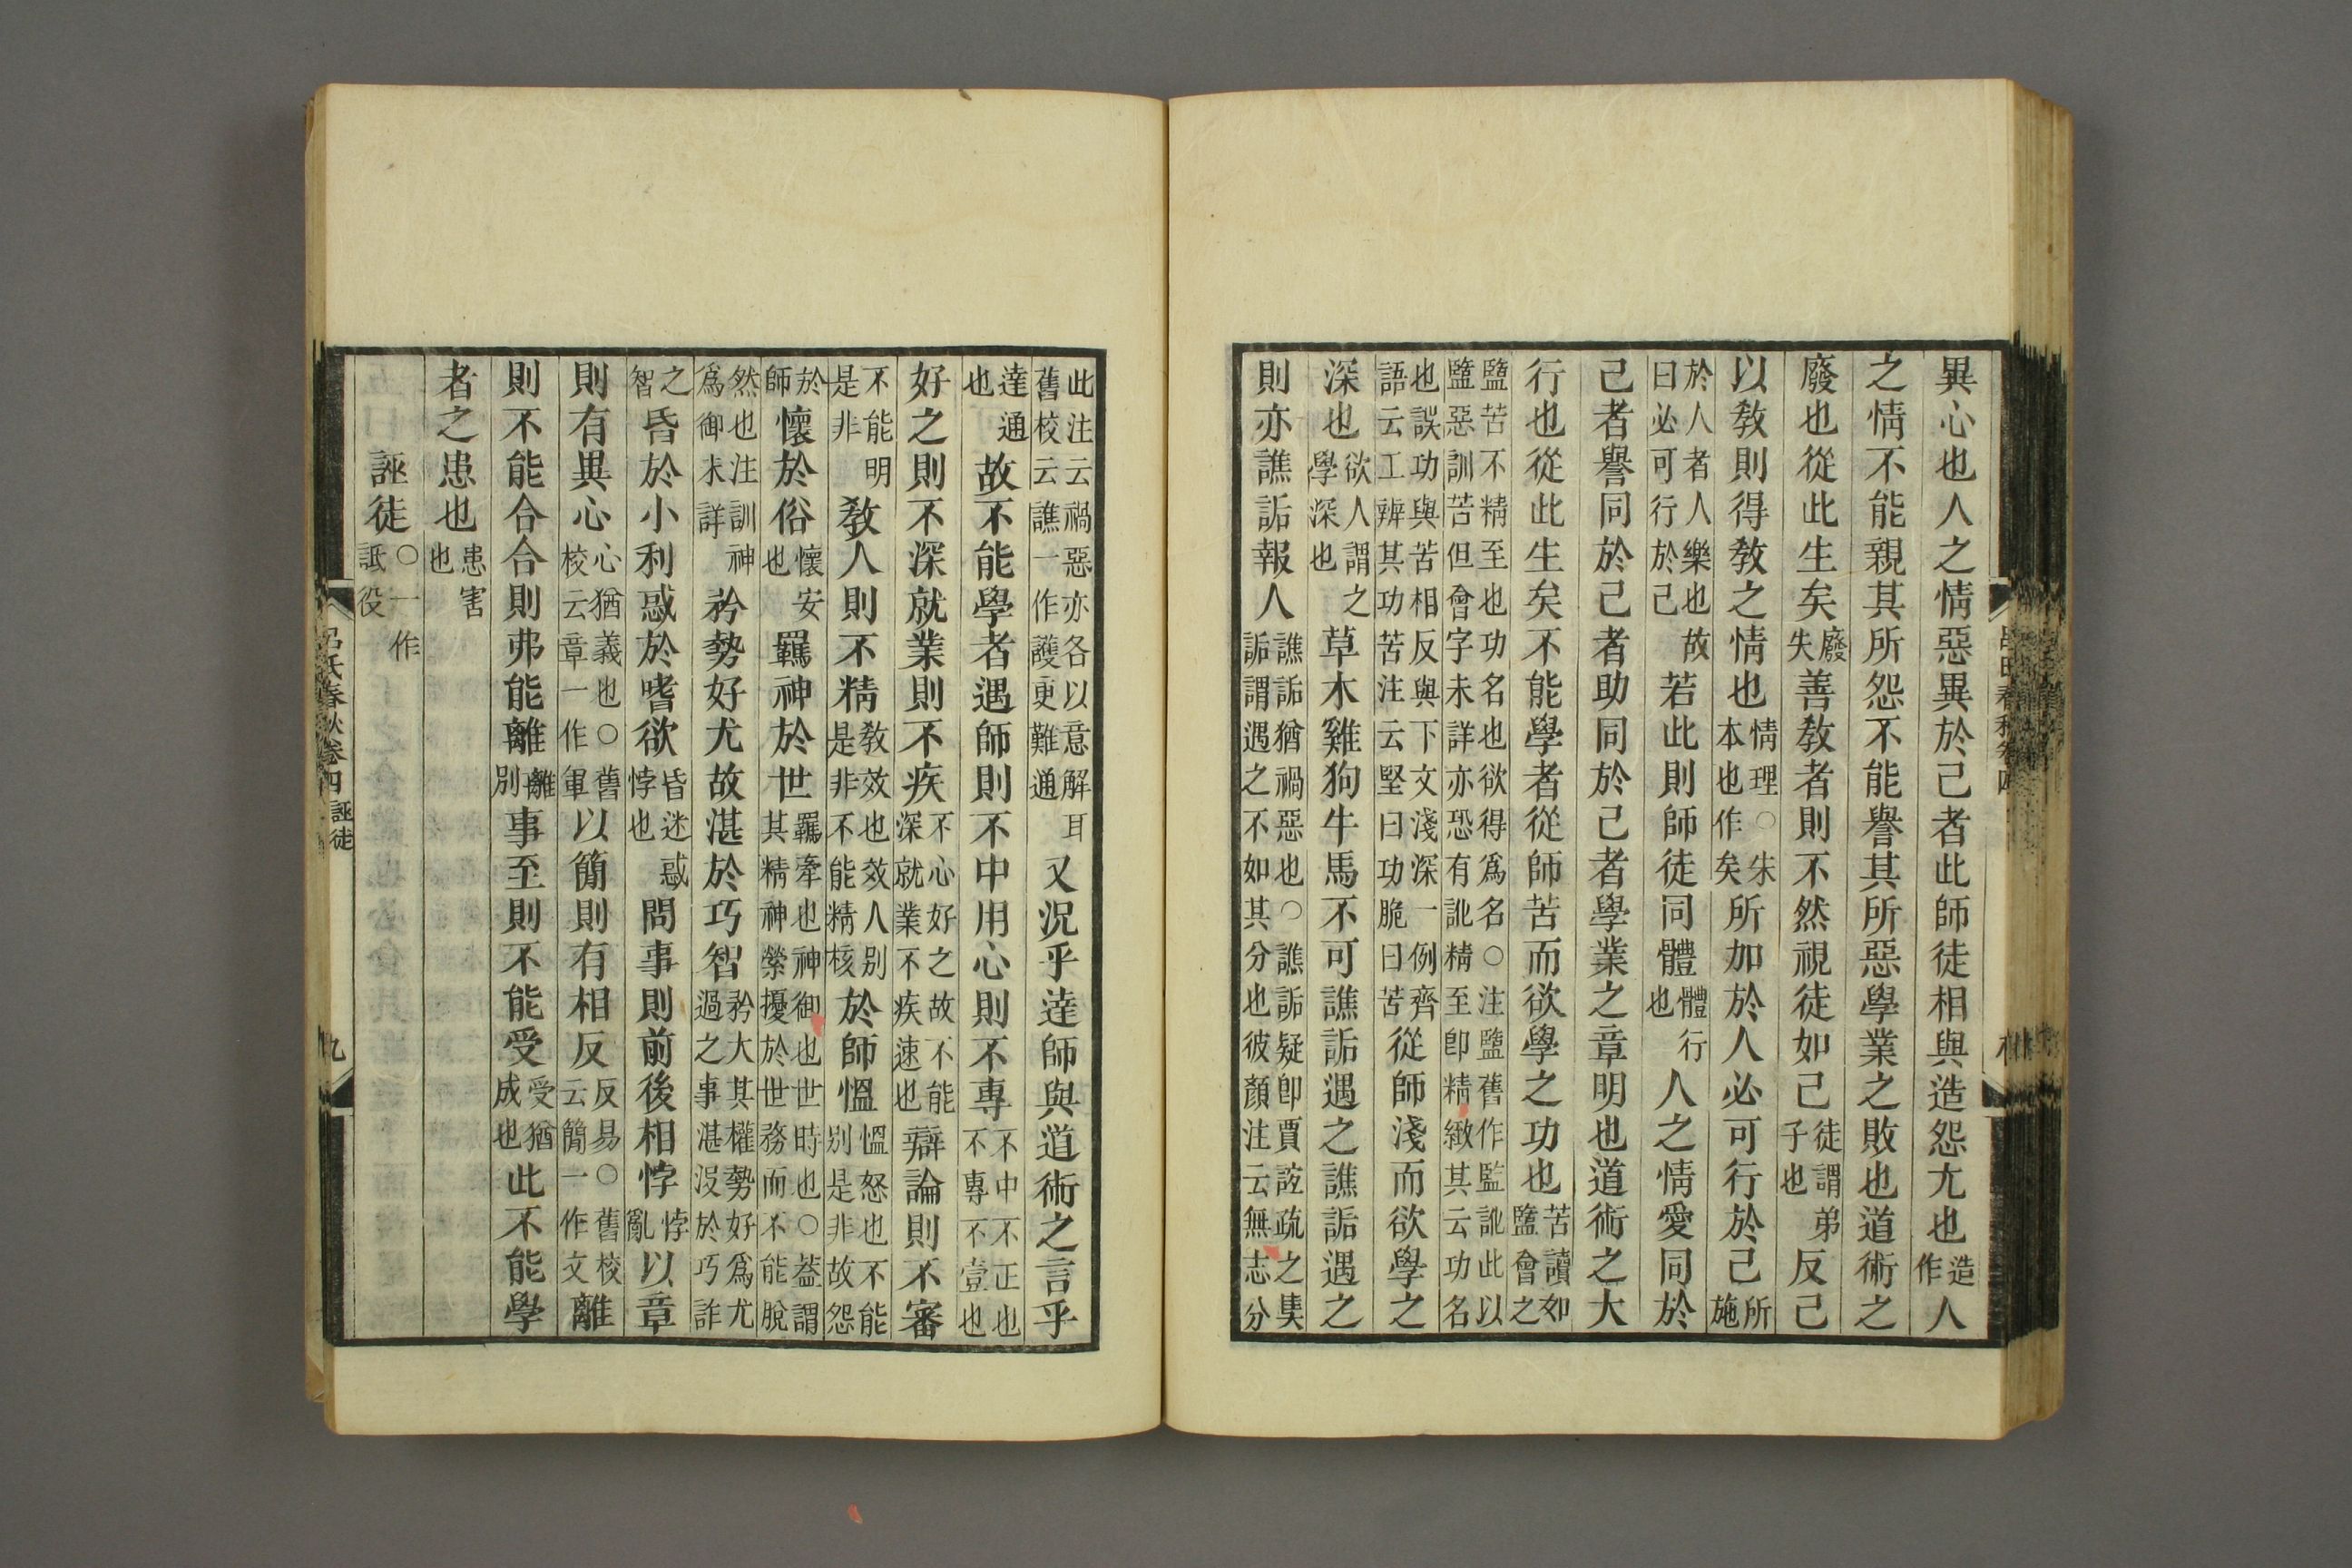 異心也人之情惡異於己者此師徒相與造怨尤也造作人
之情不能親其所怨不能譽其所惡學業之敗也道術之
廢也從此生矣廢失善教者則不然視徒如己徒謂弟子也反己
以教則得教之情也情理○朱本也作矣所加於人必可行於己所施
於人者人樂也故曰必可行於己若此則師徒同體體行也人之情愛同於
己者譽同於己者助同於己者學業之章明也道術之大
行也從此生矣不能學者從師苦而欲學之功也苦讀如盬會之
盬苦不精至也功名也欲得爲名○注盬舊作監訛此以盬惡訓苦但會字未詳亦恐有訛精至卽精緻其云功名
也誤功與苦相反與下文淺深一例齊語云工辨其功苦注云堅曰功脆曰苦從師淺而欲學之
深也欲人謂之學深也草木雞狗牛馬不可譙詬遇之譙詬遇之
則亦譙詬報人譙詬猶禍惡也○譙詬疑卽賈誼疏之奊詬謂遇之不如其分也彼顏注云無志分
呂氏春秋卷四
此注云禍惡亦各以意解耳舊校云譙一作護更難通又況乎達師與道術之言乎
達通也故不能學者遇師則不中用心則不專不中不正也不專不壹也
好之則不深就業則不疾不心好之故不能深就業不疾速也辯論則不審
不能明是非教人則不精教效也效人別是非不能精核於師慍慍怒也不能別是非故怨
於師懷於俗懷安也羈神於世羈牽也神御也世時也○葢謂其精神縈擾於世務而不能脫
然也注訓神爲御未詳矜勢好尤故湛於巧智矜大其權勢好爲尤過之事湛沒於巧詐
之智昏於小利惑於嗜欲昏迷惑悖也問事則前後相悖悖亂以章
則有異心心猶義也○舊校云章一作軍以簡則有相反反易○舊校云簡一作文離
則不能合合則弗能離離別事至則不能受受猶成也此不能學
者之患也患害也
誣徒○一作詆役
呂氏春秋卷四 誣徒 九